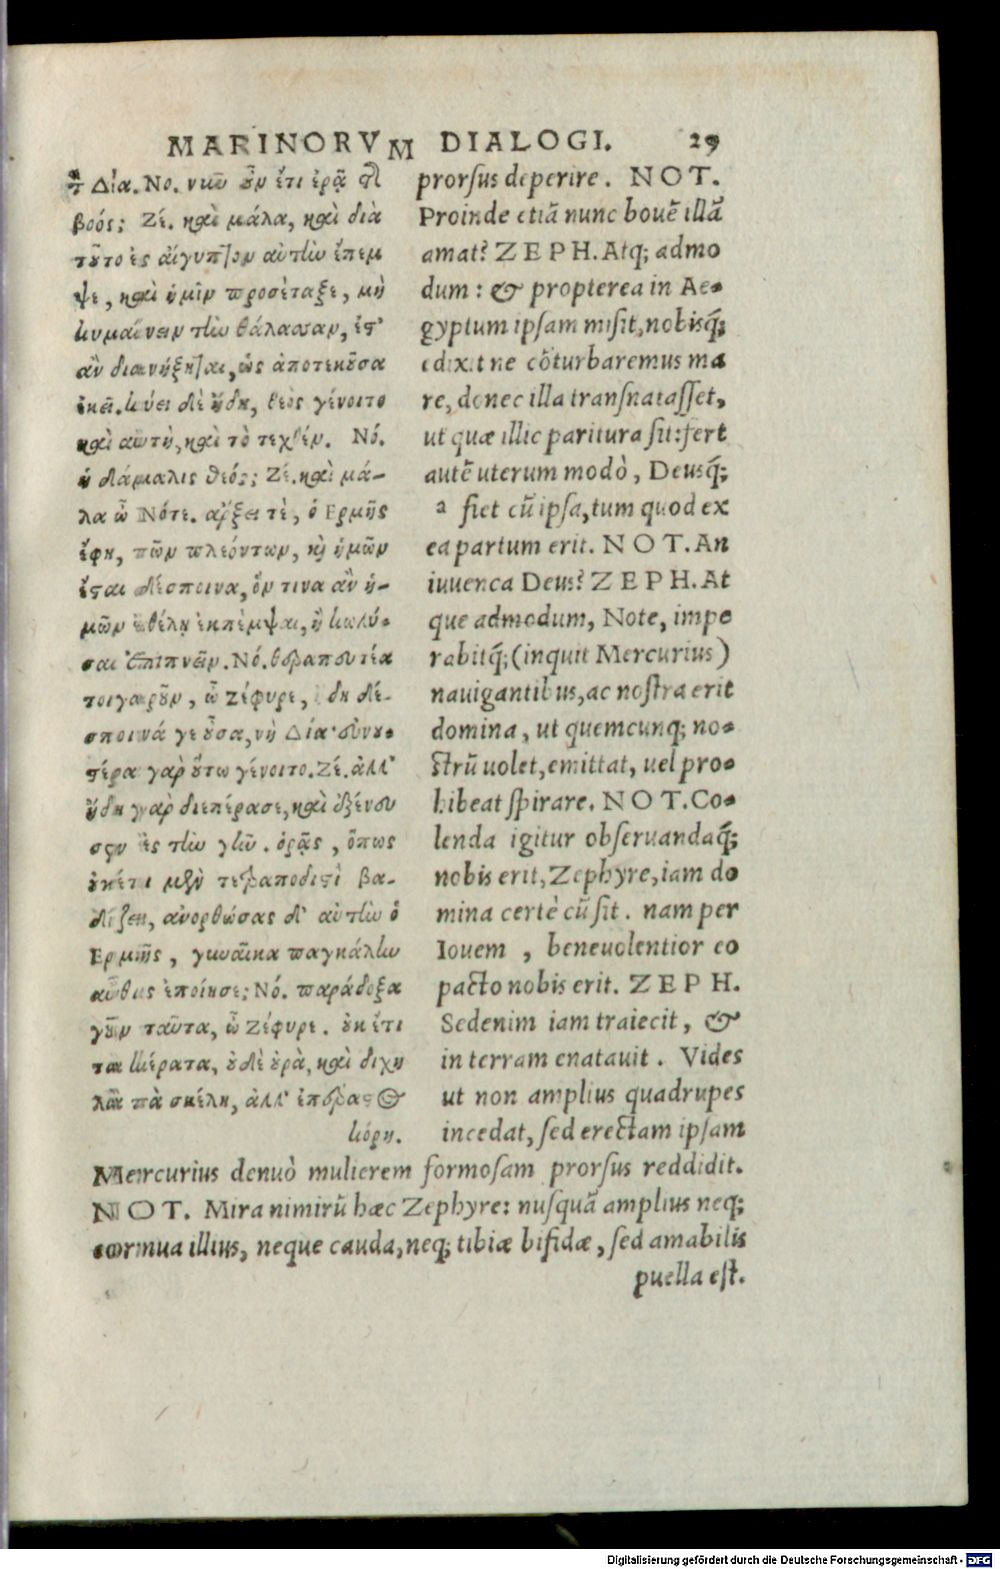 MARINORVM DIALOGI. 29
τ Δία. Νο. νιῦ οὖν ἔτι ἐρᾷ τῆ
βοός; Ζέ. καὶ μάλα, καὶ διὰ
τοῦτο ἐς αἴγυπτον αὐτὴν ἔπεμ
ψε, καὶ ἡμῖν προσέταξε, μὴ
κυμαίνειν τὴν θάλασσαν, ἔς τ'
ἂν διανήξηται, ὡς ἀποτεκοῦσα
ἐκεῖ. κύει δὲ ἤδη, θεὸς γένοιτο
καὶ αὐτὴ, καὶ τὸ τεχθέν. Νό.
ἡ δάμαλις θεός; Ζέ. καὶ μά-
λα ὦ Νότε. ἄρξει τὲ, ὁ Ερμῆς
ἔφη, τῶν πλεόντων, καὶ ἡμῶν
ἔσται δέσποινα, ὅν τινα ἂν ἡ-
μῶν ἐθέλῃ ἐκπέμψαι, ἢ κωλύ-
σαι ἐπιπνεῖν. Νό. θεραπευτέα
τοιγαροῦν, ὦ Ζέφυρε, ἤδη δέ-
σποινά γε οὖσα, νὴ Δία· εὐνου-
στέρα γὰρ οὕτω γένοιτο. Ζέ. ἀλλ'
ἤδη γὰρ διεπέρασε, καὶ ἐξένευ
σεν ἐς τὴν γῆν. ὁρᾷς, ὅπως
οὐκέτι μὲν τετραποδιστὶ βα-
δίζει, ἀνορθώσας δ' αὐτὴν ὁ
Ερμῆς, γυναῖκα παγκάλην
αὖθις ἐποίησε; Νό. παράδοξα
γοῦν ταῦτα, ὦ Ζέφυρε. οὐκ ἔτι
τὰ κέρατα, οὐδὲ οὐρὰ, καὶ διχη
λὰ τὰ σκέλη, ἀλλ' ἐπέραστος
κόρη.
prorsus deperire. NOT.
Proinde etiã nunc bouẽ illã
amat? ZEPH. Atq; admo
dum: & propterea in Ae-
gyptum ipsam misit, nobisq́;
edixit ne cõturbaremus ma
re, donec illa transnatasset,
ut quæ illic paritura sit: fert
autẽ uterum modò, Deusq́;
a fiet cũ ipsa, tum quod ex
ea partum erit. NOT. An
iuuenca Deus? ZEPH. At
que admodum, Note, impe
rabitq́; (inquit Mercurius)
nauigantibus, ac nostra erit
domina, ut quemcunq; no-
strũ uolet, emittat, uel pro-
hibeat spirare. NOT. Co-
lenda igitur obseruandaq́;
nobis erit, Zephyre, iam do
mina certè cũ sit. nam per
Iouem , beneuolentior eo
pacto nobis erit. ZEPH.
Sedenim iam traiecit, &
in terram enatauit. Vides
ut non amplius quadrupes
incedat, sed erectam ipsam
Mercurius denuò mulierem formosam prorsus reddidit.
NOT. Mira nimirũ hæc Zephyre: nusquã amplius neq;
cornua illius, neque cauda, neq; tibiæ bifidæ, sed amabilis
puella est.
Digitalisierung gefördert durch die Deutsche Forschungsgemeinschaft - DFG